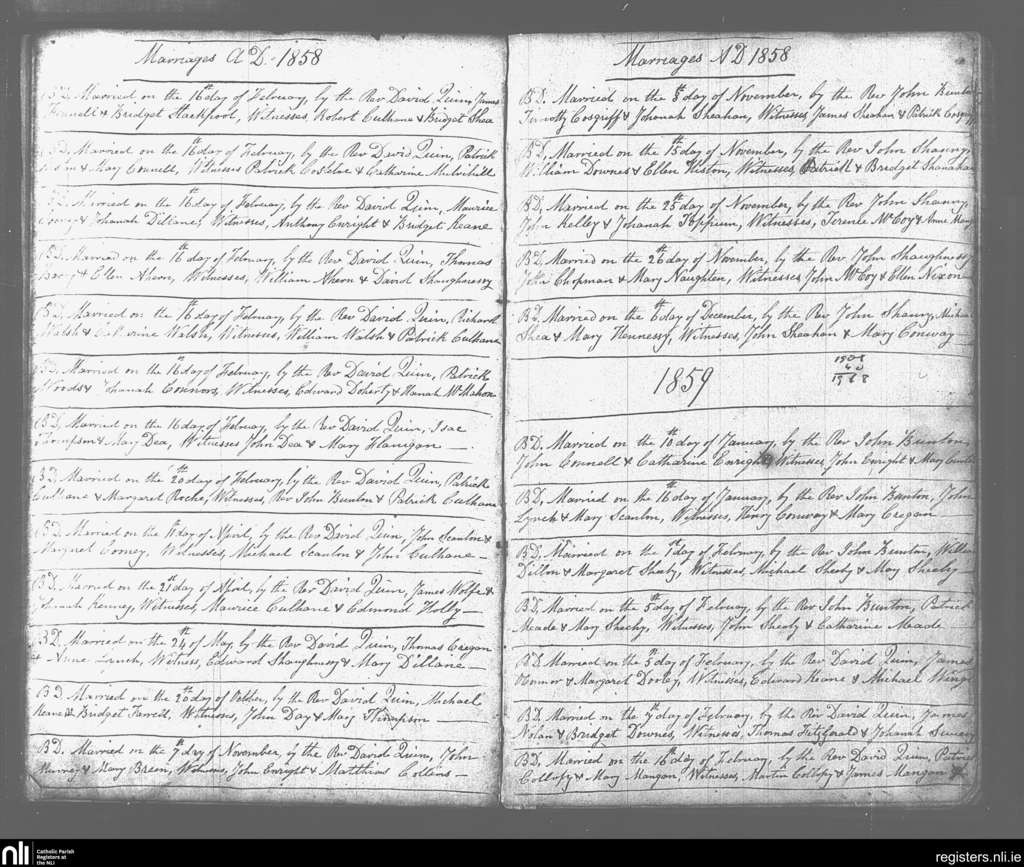 Marriages A.D. 1858
B D. Married on the 16th day of February, by the Rev David Quin, James
& Bridget Stackpool, Witnesses, Robert Culhane & Bridget Shea
BD, Married on the 16th day of February, by the Rev David Quin, Patrick
& Mary Connell, Witnesses Patrick Costeloe & Catherine Mulvihill
BD, Married on the 16th day of February, by the Rev David Quin, Maurice
& Johanah Dillane, Witnesses, Anthony Enright & Bridget Keane
BD, Married on the 16th day of February, by the Rev David Quin, Thomas
& Ellen Ahern, Witnesses, William Ahern & David Shaughnessy
BD, Married on the 16th day of February, by the Rev David Quin, Richard
Walsh & Catherine Walsh, Witnesses, William Walsh & Patrick Culhane
BD, Married on the 16th day of February, by the Rev David Quin, Patrick
Woods & Johanah Connors, Witnesses, Edward Doherty & Hanah McMahon
BD, Married on the 16th day of February, by the Rev David Quin, Isac
Thompson & Mary Dea, Witnesses John Dea & Mary Flanigan —
BD Married on the 20th day of February, by the Rev David Quin, Patrick
Culhane & Margaret Roche, Witnesses, Rev John Bunton & Patrick Culhane
BD. Married on the 11th day of April, by the Rev David Quin, John Scanlon &
Margret Cooney, Witnesses, Michael Scanlon & John Culhane —
BD, Married on the 21st day of April, by the Rev David Quin, James Wolfe &
Johanah Kenney, Witnesses, Maurice Culhane & Edmond Holly —
BD. Married on the 24th of May, by the Rev David Quin, Thomas Cregan
& Anne Lynch, Witness, Edward Shaughnessy & Mary Dillane —
BD. Married on the 20th day of October, by the Rev David Quin, Michael
Keane & Bridget Farrell, Witnesses, John Day & Mary Thompson —
BD. Married on the 7th day of November, by the Rev David Quin, John
& Mary Breen, Witness, John Enright & Matthias Collens —
Marriages A D 1858
BD. Married on the 5th day of November, by the Rev John Bunton
Timothy Cosgriff & Johonah Sheahan, Witnesses James Sheahan & Patrick Cosgriff
BD, Married on the 15th day of November, by the Rev John Shaunessy
William Downes & Ellen Histon, Witnesses, Patrick & Bredget Shanahan
BD, Married on the 25th day of November, by the Rev John Shaunessy
John Kelley & Johanah Toppien, Witnesses, Terence McCoy & Anne
BD, Married on the 26th day of November, by the Rev John Shaughnessy
John Chopman & Mary Naughten, Witnesses John McCoy & Ellen Nixon
BD. Married on the 6th day of December, by the Rev John Shauny, Michael
Shea & Mary Hennessy, Witnesses, John Sheahan & Mary Conway —
1859
1908
60
1968
BD. Married on the 10th day of January, by the Rev John Bunton,
John Connell & Catharine Enright Witnesses, John Enright & Mary
BD, Married on the 16th day of January, by the Rev John Bunton, John
Lynch & Mary Scanlon, Witnesses, Henry Conway & Mary Cregan
BD. Married on the 1st day of February, by the Rev John Bunton, William
Dillon & Margaret Sheehy, Witnesses, Michael Sheehy & May Sheehy —
BD, Married on the 5th day of February, by the Rev John Bunton, Patrick
Meade & Mary Sheehy, Witnesses, John Sheehy & Catharine Meade
BD Married on the 5th day of February, by the Rev David Quin, James
Connor & Margaret Dooley, Witnesses, Edward Keane & Michael
BD. Married on the 7th day of February, by the Rev David Quin, James
Nolan & Bridget Downes, Witnesses, Thomas Fitzgerald & Johanah
BD, Married on the 16th day of February, by the Rev David Quin, Patrick
Collopy & Mary Mangan, Witnesses, Martin Collopy & James Mangan
nli
Catholic Parish
Registers at
the NLI
registers.nli.ie